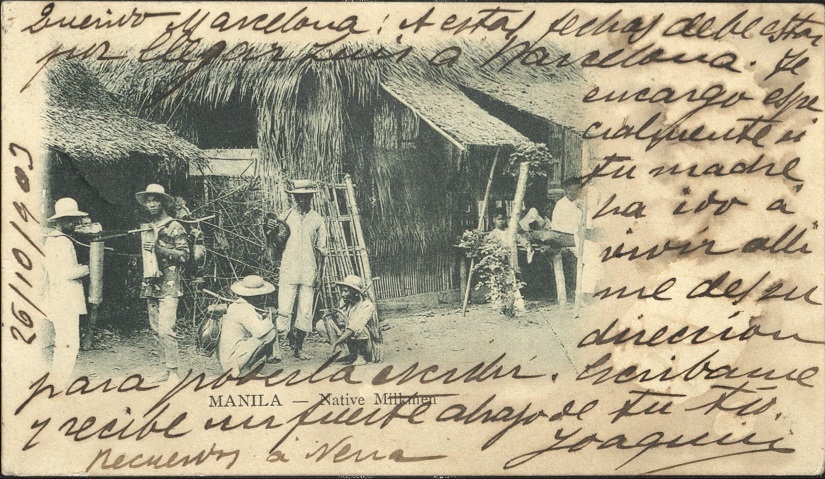 Querido Marcelona: A estas fechas debe estar
por llegar Luis a Barcelona. Te
encargo espe
cialmente si
tu madre
ha ido a
vivir alli
me des su
dirección
para poderla escribir. Escribame
y recibe un fuerte abrazo de tu tio.
Joaquin
Recuerdos a Nena
26/10/903
MANILA — Native Milkmen